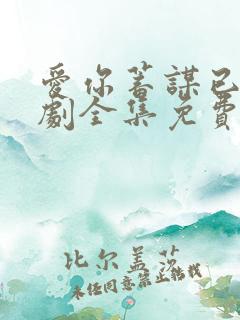 愛你蓄謀已
劇全集免費
比尔盖茨
未经同意禁止转载